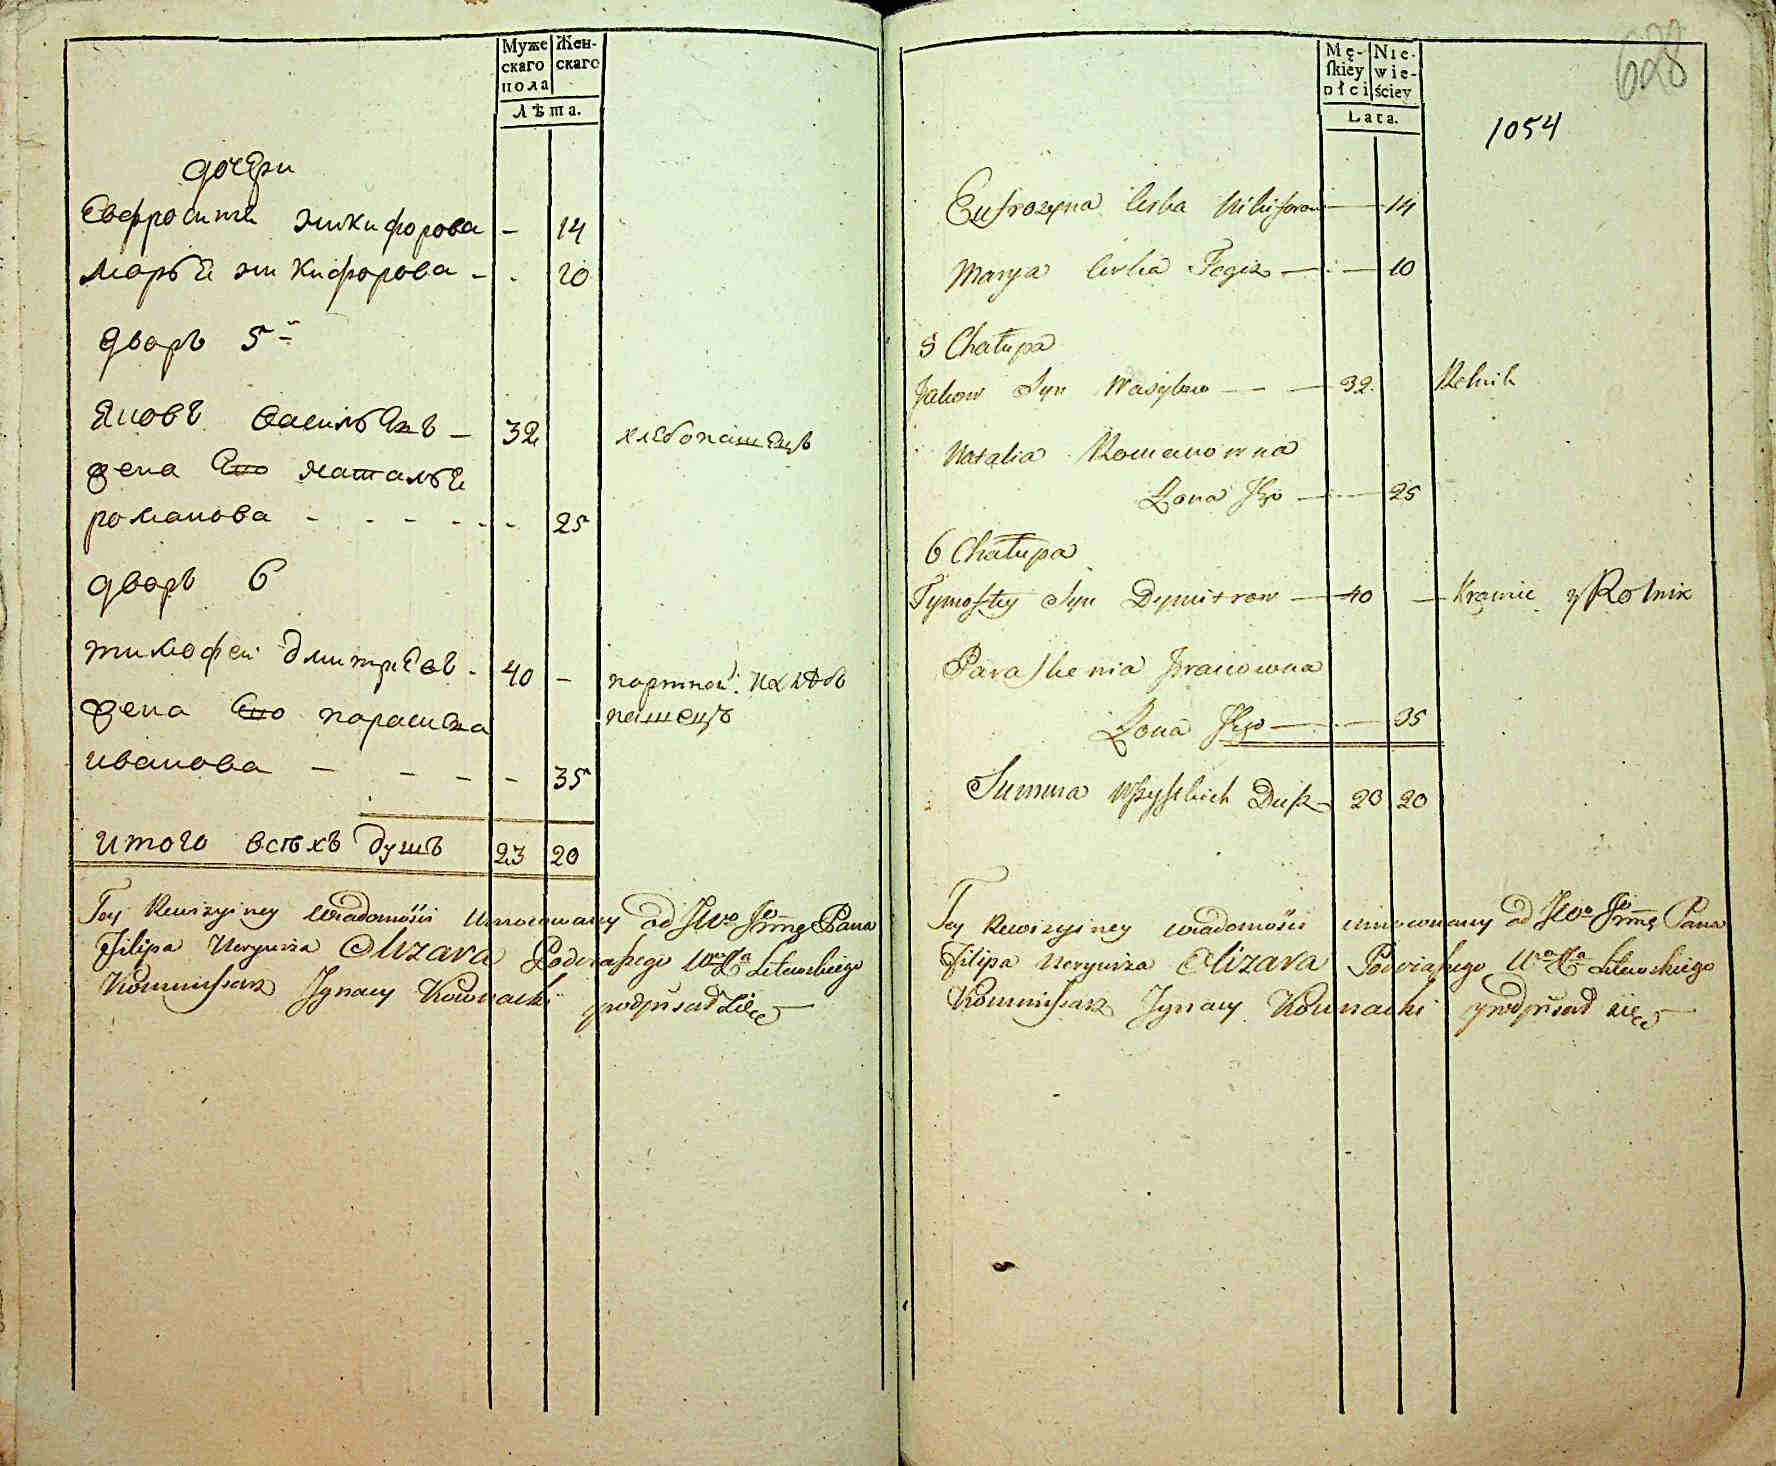 Муже Жен-
скаго скаго
пола
Лѣта.
дочери
Евфросинiя никифорова - 14
марья никифорова - - 10
дворъ 5й
яковъ васильевъ - 32 хлебопашецъ
жена Его наталья
романова - - - - - 25
дворъ 6
тимофеи дмитриевъ - 40 - портной и хлѣбо
жена Его параскева пашецъ
иванова - - - - 35
итого всѣхъ душъ 23 20
Tey Rewizyiney wiadomości umocowany od JWo Jmę Pana
Filipa Neryusza Olizara Podczaszego Litewskiego
Kommissarz Jgnacy Kownacki podpisał się
628
1054
Mę- Nie-
skiey wie-
płci ściey
Lata.
Eufrozyna Corka Nikiforow 14
Marya Corka Tegoz 10
5 Chałupa
Jakow Syn Wasylow 32 Rolnik
Natalia Romanowna
Zona Jego 25
6 Chałupa
Tymoftey Syn Dymitrow 40 Krawiec y Rolnik
Paraskewia Jwanowna
Zona Jego 35
Summa Wszystkich Dusz 23 20
Tey Rewizyiney wiadomości umocowany od JWo Jmę Pana
Filipa Neryusza Olizara Podczaszego Litewskiego
Kommissarz Jgnacy Kownacki podpisał się